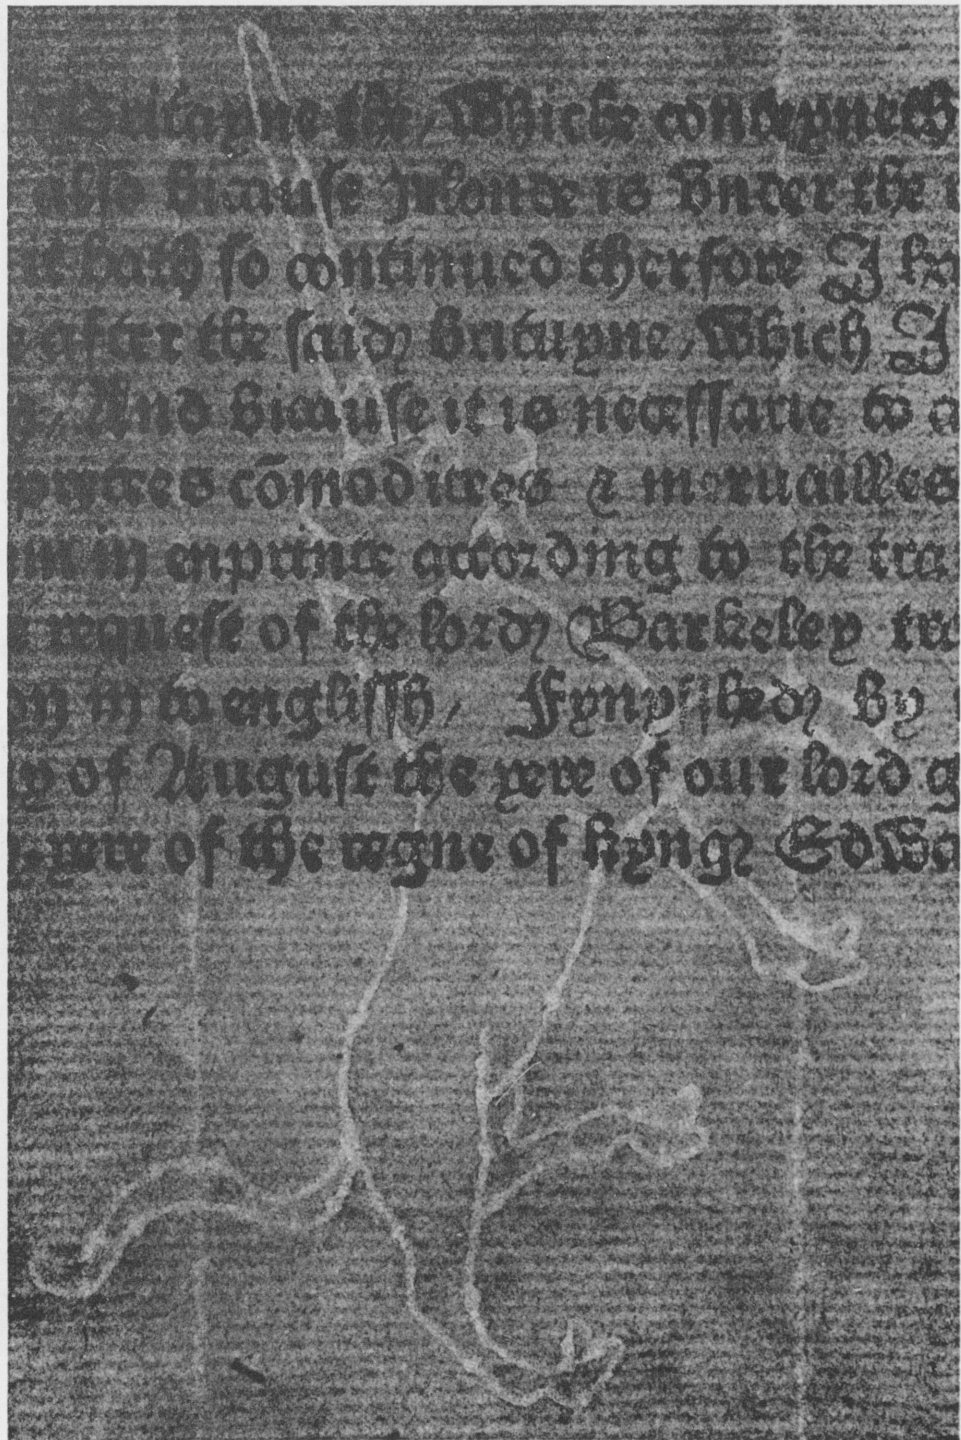 the / Whiche conteyneth
also bicause Irlonde is vnder the
hath so continued therfore I
after the said Britayne / Which I
/ And bicause it is necessarie to
comoditees & meruailles
enprinte according to the
requeste of the lord Barkeley
in to englissh / Fynysshed by
of August the yere of our lord
yere of the regne of kyng